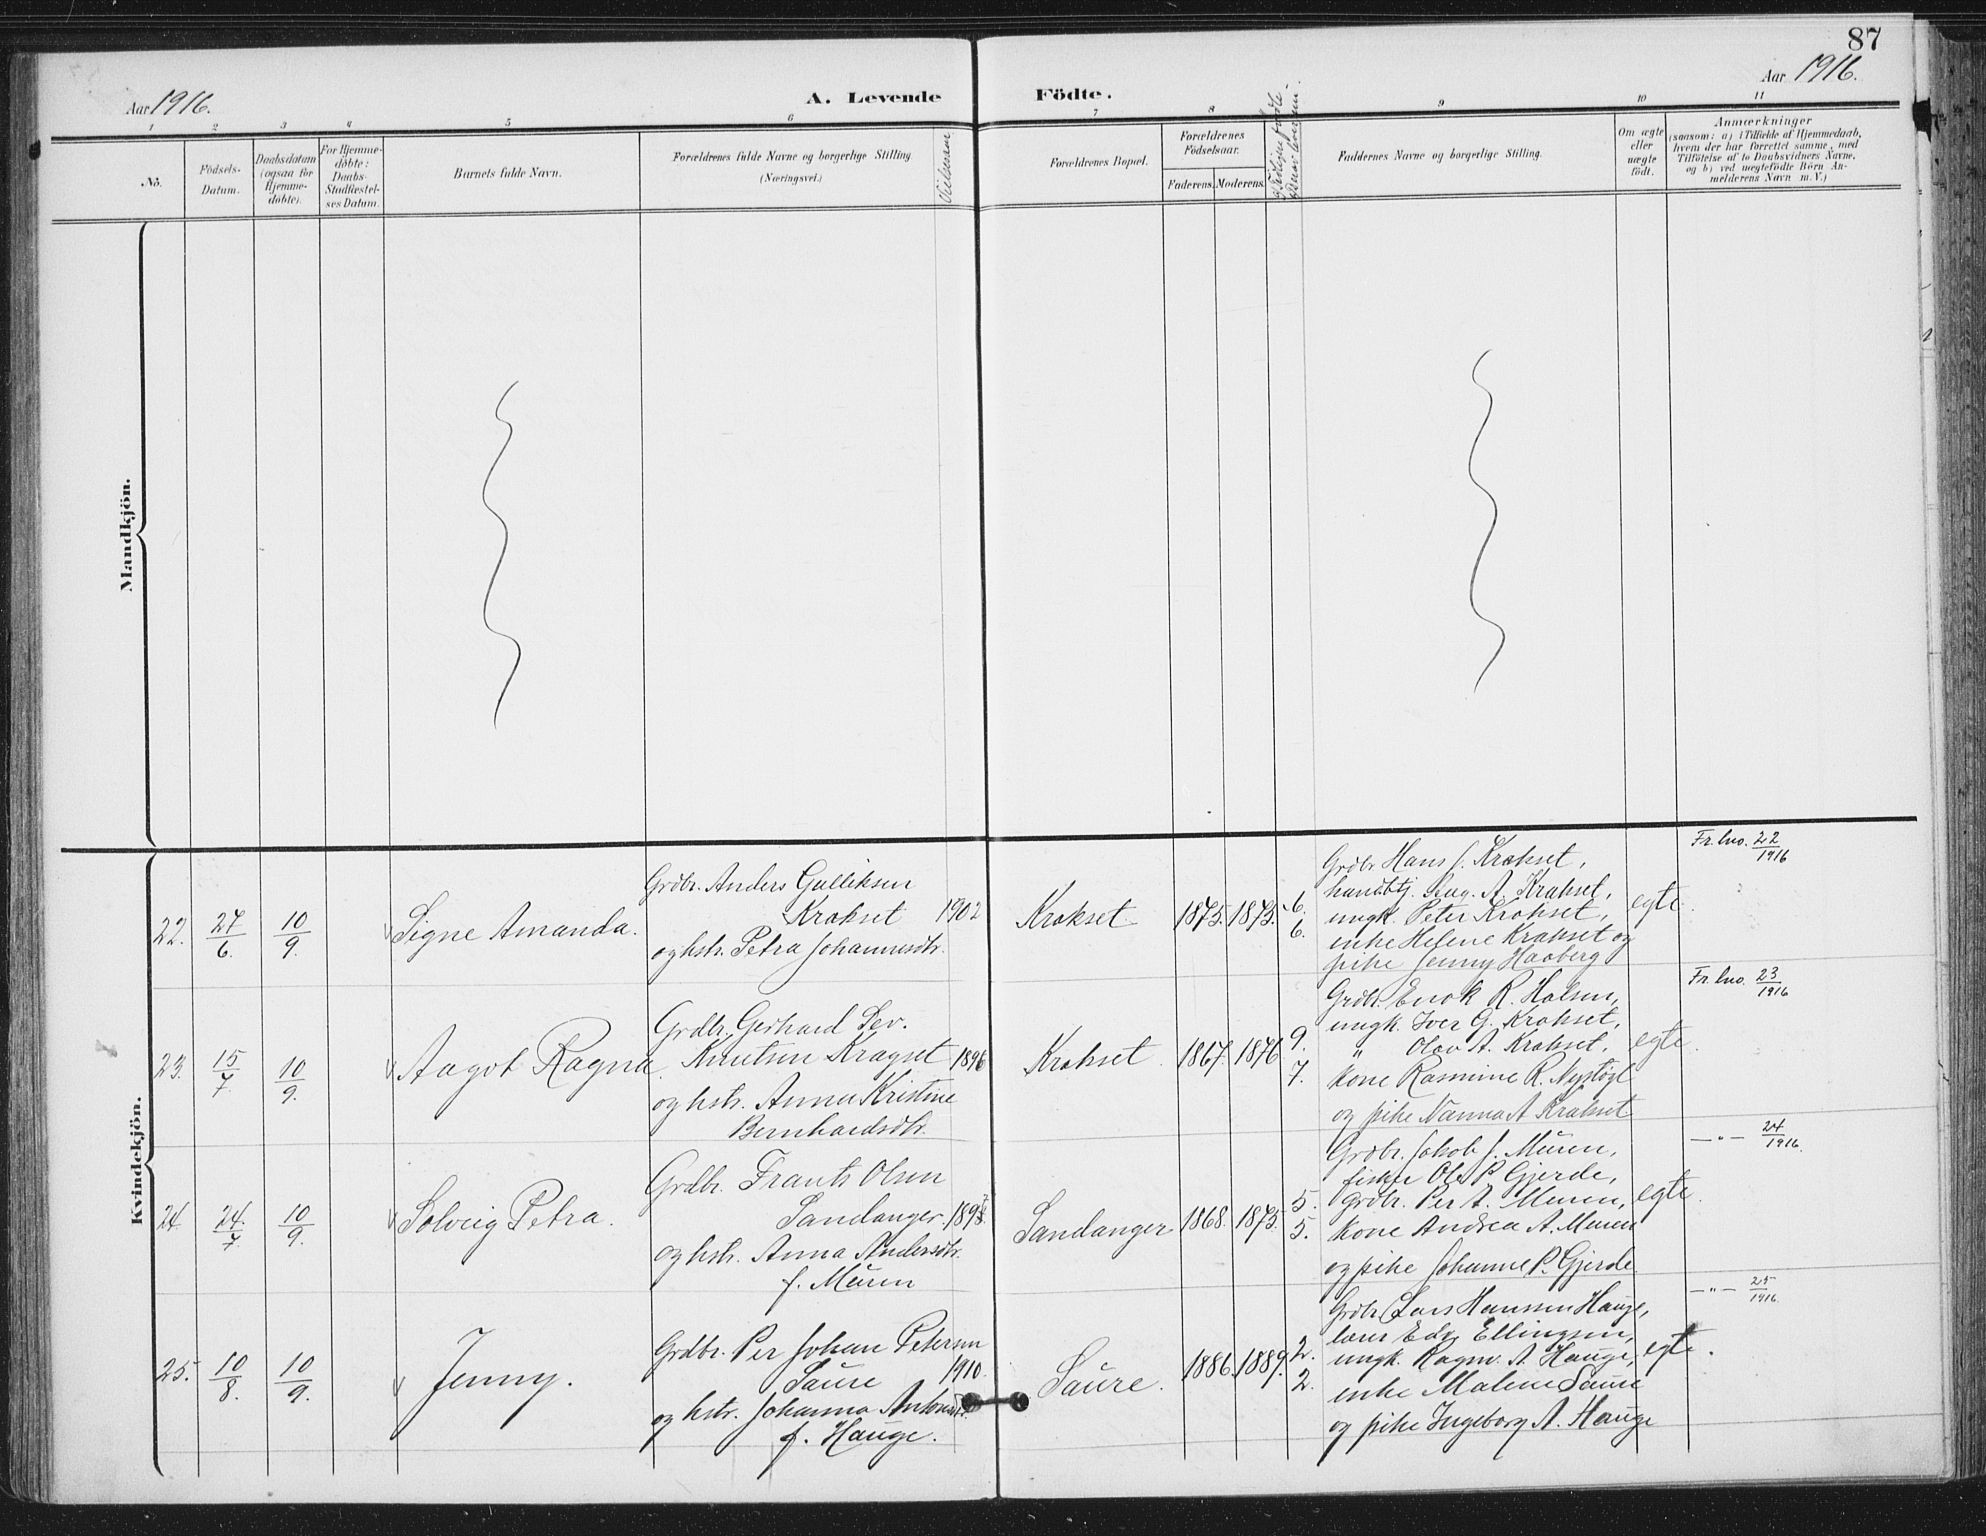 87
Aar 1916.
A. Levende Födte.
Aar 1916.
1 2 3 4 5 6 7 8 9 10 11
No.
Födsels-
Datum.
Daabsdatum
(ogsaa for
Hjemme-
døbte).
For Hjemme-
døbte:
Daabs-
Stadfæstel-
ses Datum.
Barnets fulde Navn.
Forældrenes fulde Navne og borgerlige Stilling
(Næringsvei.)
Forældrenes Bopæl.
Forældrenes
Födselsaar.
Faderens. Moderens.
Faddernes Navne og borgerlige Stilling.
Om ægte
eller
uægte
födt.
Anmærkninger
(saasom: a) i Tilfælde af Hjemmedaab,
hvem der har forrettet samme, med
Tilföielse af to Daabsvidners Navne,
og b) ved uægtefödte Börn An-
melderens Navn m. V.)
Mandkjön.
Kvindekjön.
22. 27/6. 10/9. Signe Amanda.
Grdbr. Anders Gulliksen
Krokset 1902
og hstr. Petra Johannesdtr.
Krokset. 1875. 1873. 6. 6.
Grdbr. Hans J. Krokset,
handbtj. Aug. A. Krokset,
ungk. Peter Krokset,
enke Helene Krokset og
pike Jenny Haaberg
egte.
Fr. lno. 22/1916
23. 15/7. 10/9. Aagot Ragna.
Grdbr. Gerhard Sev.
Knutsen Kragset 1896
og hstr. Anna Kristine
Bernhardsdtr.
Krokset. 1867. 1876 9. 7.
Grdbr. Enok R. Holsen,
ungk. Iver G. Krokset,
" Olav A. Krokset,
kone Rasmine R. Nystöyl
og pike Nanna A Krokset
egte.
Fr. lno. 23/1916
24 24./7. 10/9. Solveig Petra.
Grdbr. Frants Olsen
Sandanger
og hstr. Anna Andersdtr.
f. Muren
Sandanger 1868. 1875. 5. 5.
Grdbr. Jakob J. Muren,
fisker Ole P. Gjerde,
Grdbr. Per A. Muren,
kone Andrea A. Muren
og pike Johanne P. Gjerde
egte.
— " — 24/1916.
25. 10/8. 10/9. Jenny.
Grdbr. Per Johan Petersen
Saure 1910.
og hstr. Johanna
f. Hauge.
Saure. 1886. 1889. 2. 2.
Grdbr. Lars Hanssen Hauge,
lærer Edv. Ellingsen,
ungk. Ragnv. A. Hauge,
enke Malene Saure
og pike Ingeborg A. Hauge
egte.
— " — 25/1916.